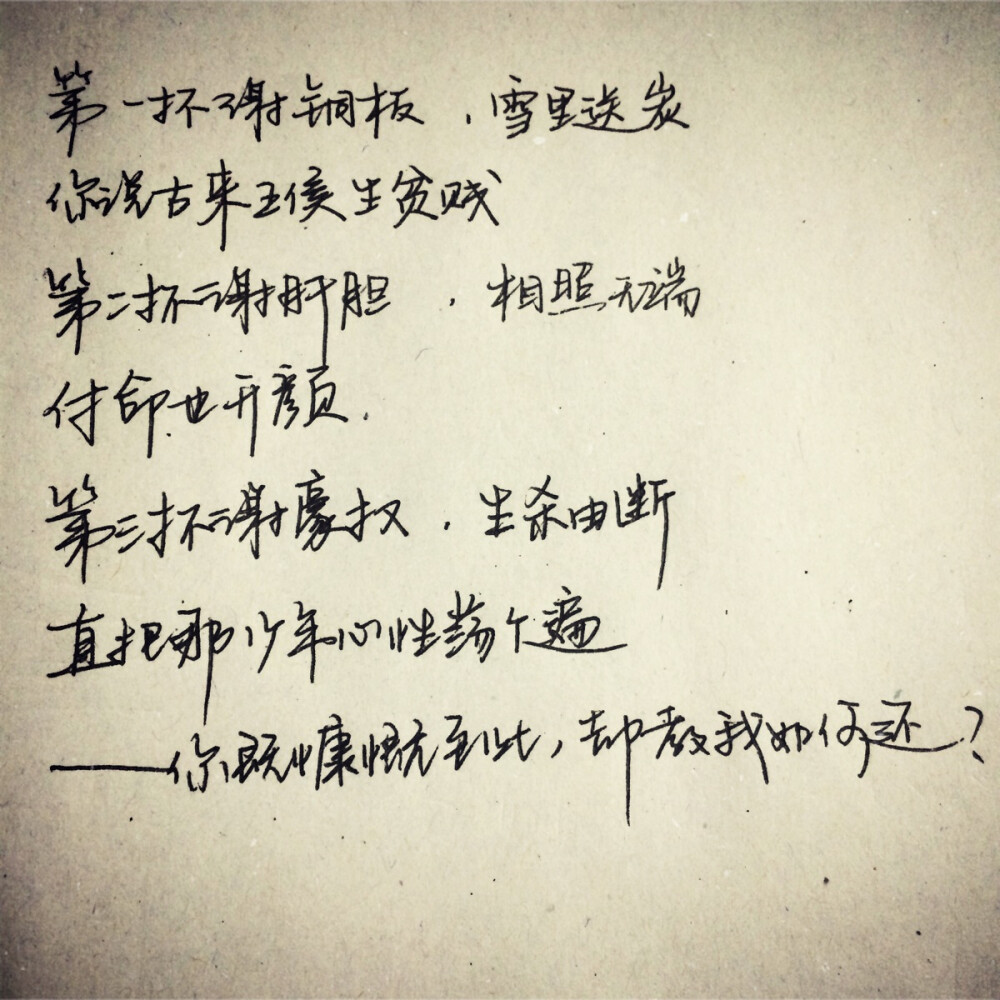 第一抔谢铜板，雪里送炭
你说古来王侯生贫贱
第二抔谢肝胆，相照无端
付命也开颜.
第三抔谢豪权，生杀由断
直把那少年心性荡个遍
——你既慷慨至此，却教我如何还？